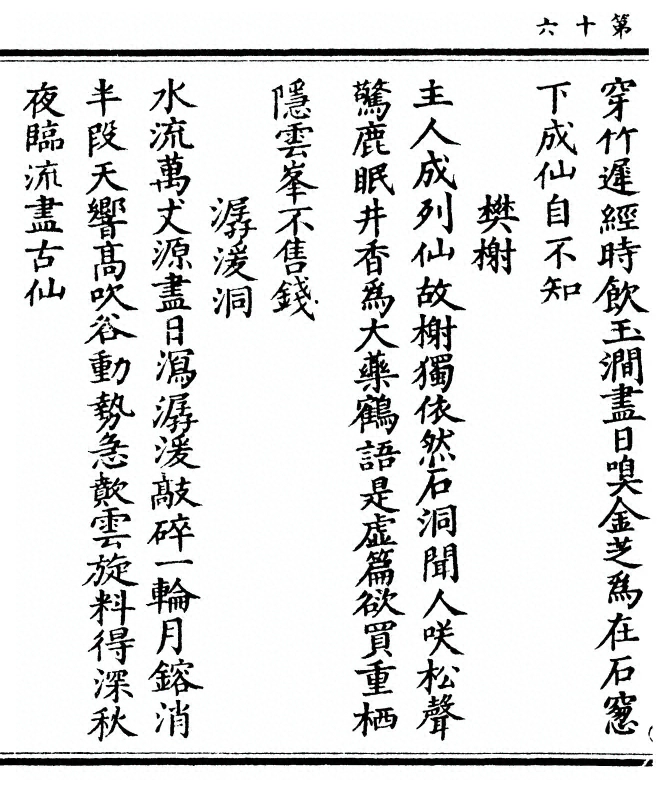 第十六
穿竹遲經時飲玉澗盡日嗅金芝爲在石窻
下成仙自不知
樊榭
主人成列仙故榭獨依然石洞聞人咲松聲
驚鹿眠井香爲大藥鶴語是虛篇欲買重栖
隱雲峯不售錢
潺湲洞
水流萬丈源盡日瀉潺湲敲碎一輪月鎔消
半段天響髙吹谷動勢急歕雲旋料得深秋
夜臨流盡古仙